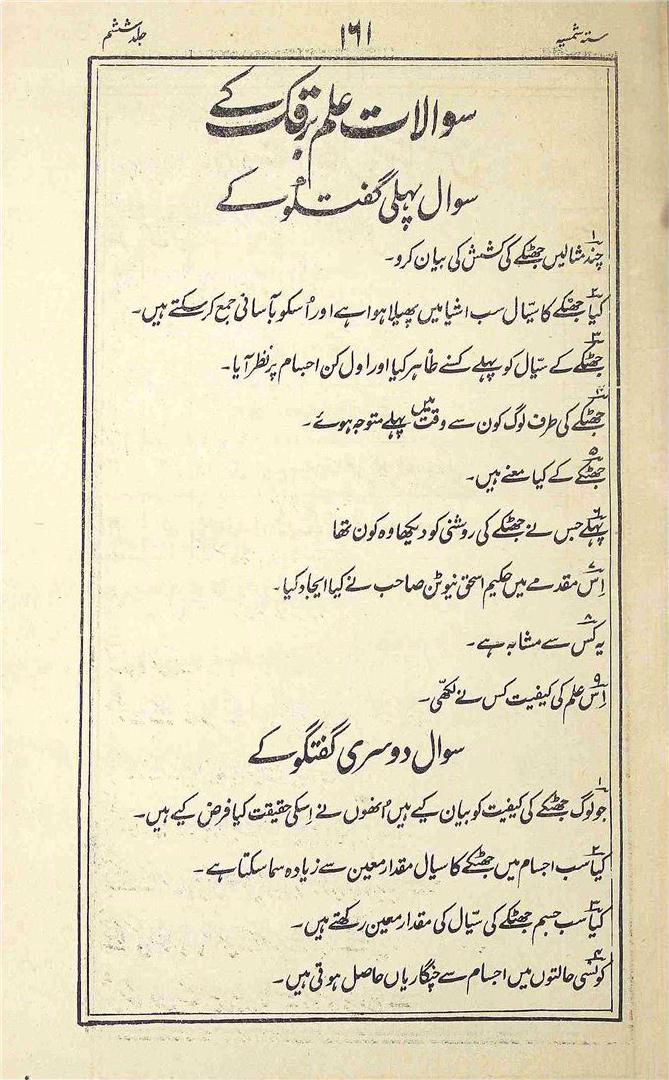 ستہ شمسیہ ۱۶۱ جلد ششم
سوالات علم برقک کے
سوال پہلی گفتگو کے
۱ چند مثالیں جھٹکے کی کشش کی بیان کرو۔
۲ کیا جھٹکے کا سیّال سب اشیا میں پھیلا ہوا ہے اور اُسکو بآسانی جمع کر سکتے ہیں۔
۳ جھٹکے کے سیّال کو پہلے کسنے ظاہر کیا اور اول کن اجسام پر نظر آیا۔
۴ جھٹکے کی طرف لوگ کون سے وقت میں پہلے متوجہ ہوئے۔
۵ جھٹکے کے کیا معنے ہیں۔
۶ پہلے جس نے جھٹکے کی روشنی کو دیکھا وہ کون تھا
۷ اِس مقدمے میں حکیم اسحٰق نیوٹن صاحب نے کیا ایجاد کیا۔
۸ یہ کس سے مشابہ ہے۔
۹ اِس علم کی کیفیت کس نے لکھّی۔
سوال دوسری گفتگو کے
۱ جو لوگ جھٹکے کی کیفیت کو بیان کیے ہیں اُنھوں نے اِسکی حقیقت کیا فرض کیے ہیں۔
۲ کیا سب اجسام میں جھٹکے کا سیال مقدار معین سے زیادہ سما سکتا ہے۔
۳ کیا سب جسم جھٹکے کی سیّال کی مقدار معین رکھتے ہیں۔
۴ کونسی حالتوں میں اجسام سے چنگاریاں حاصل ہوتی ہیں۔